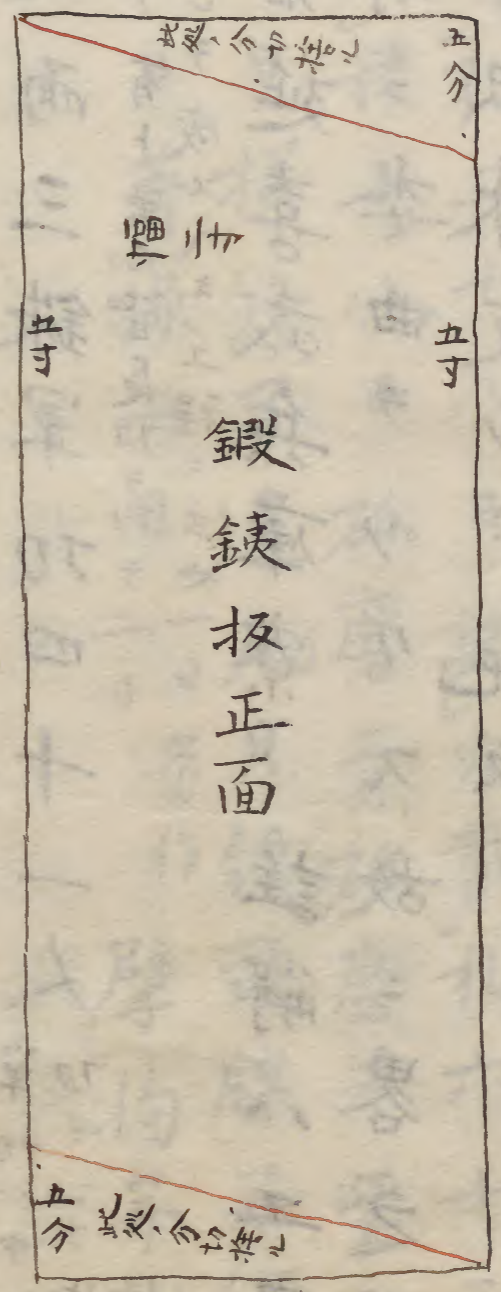 五分
此処ノ分切捨ル
幅二寸
五寸
五寸
鍛銕板正面
五分
此処ノ分切捨ル